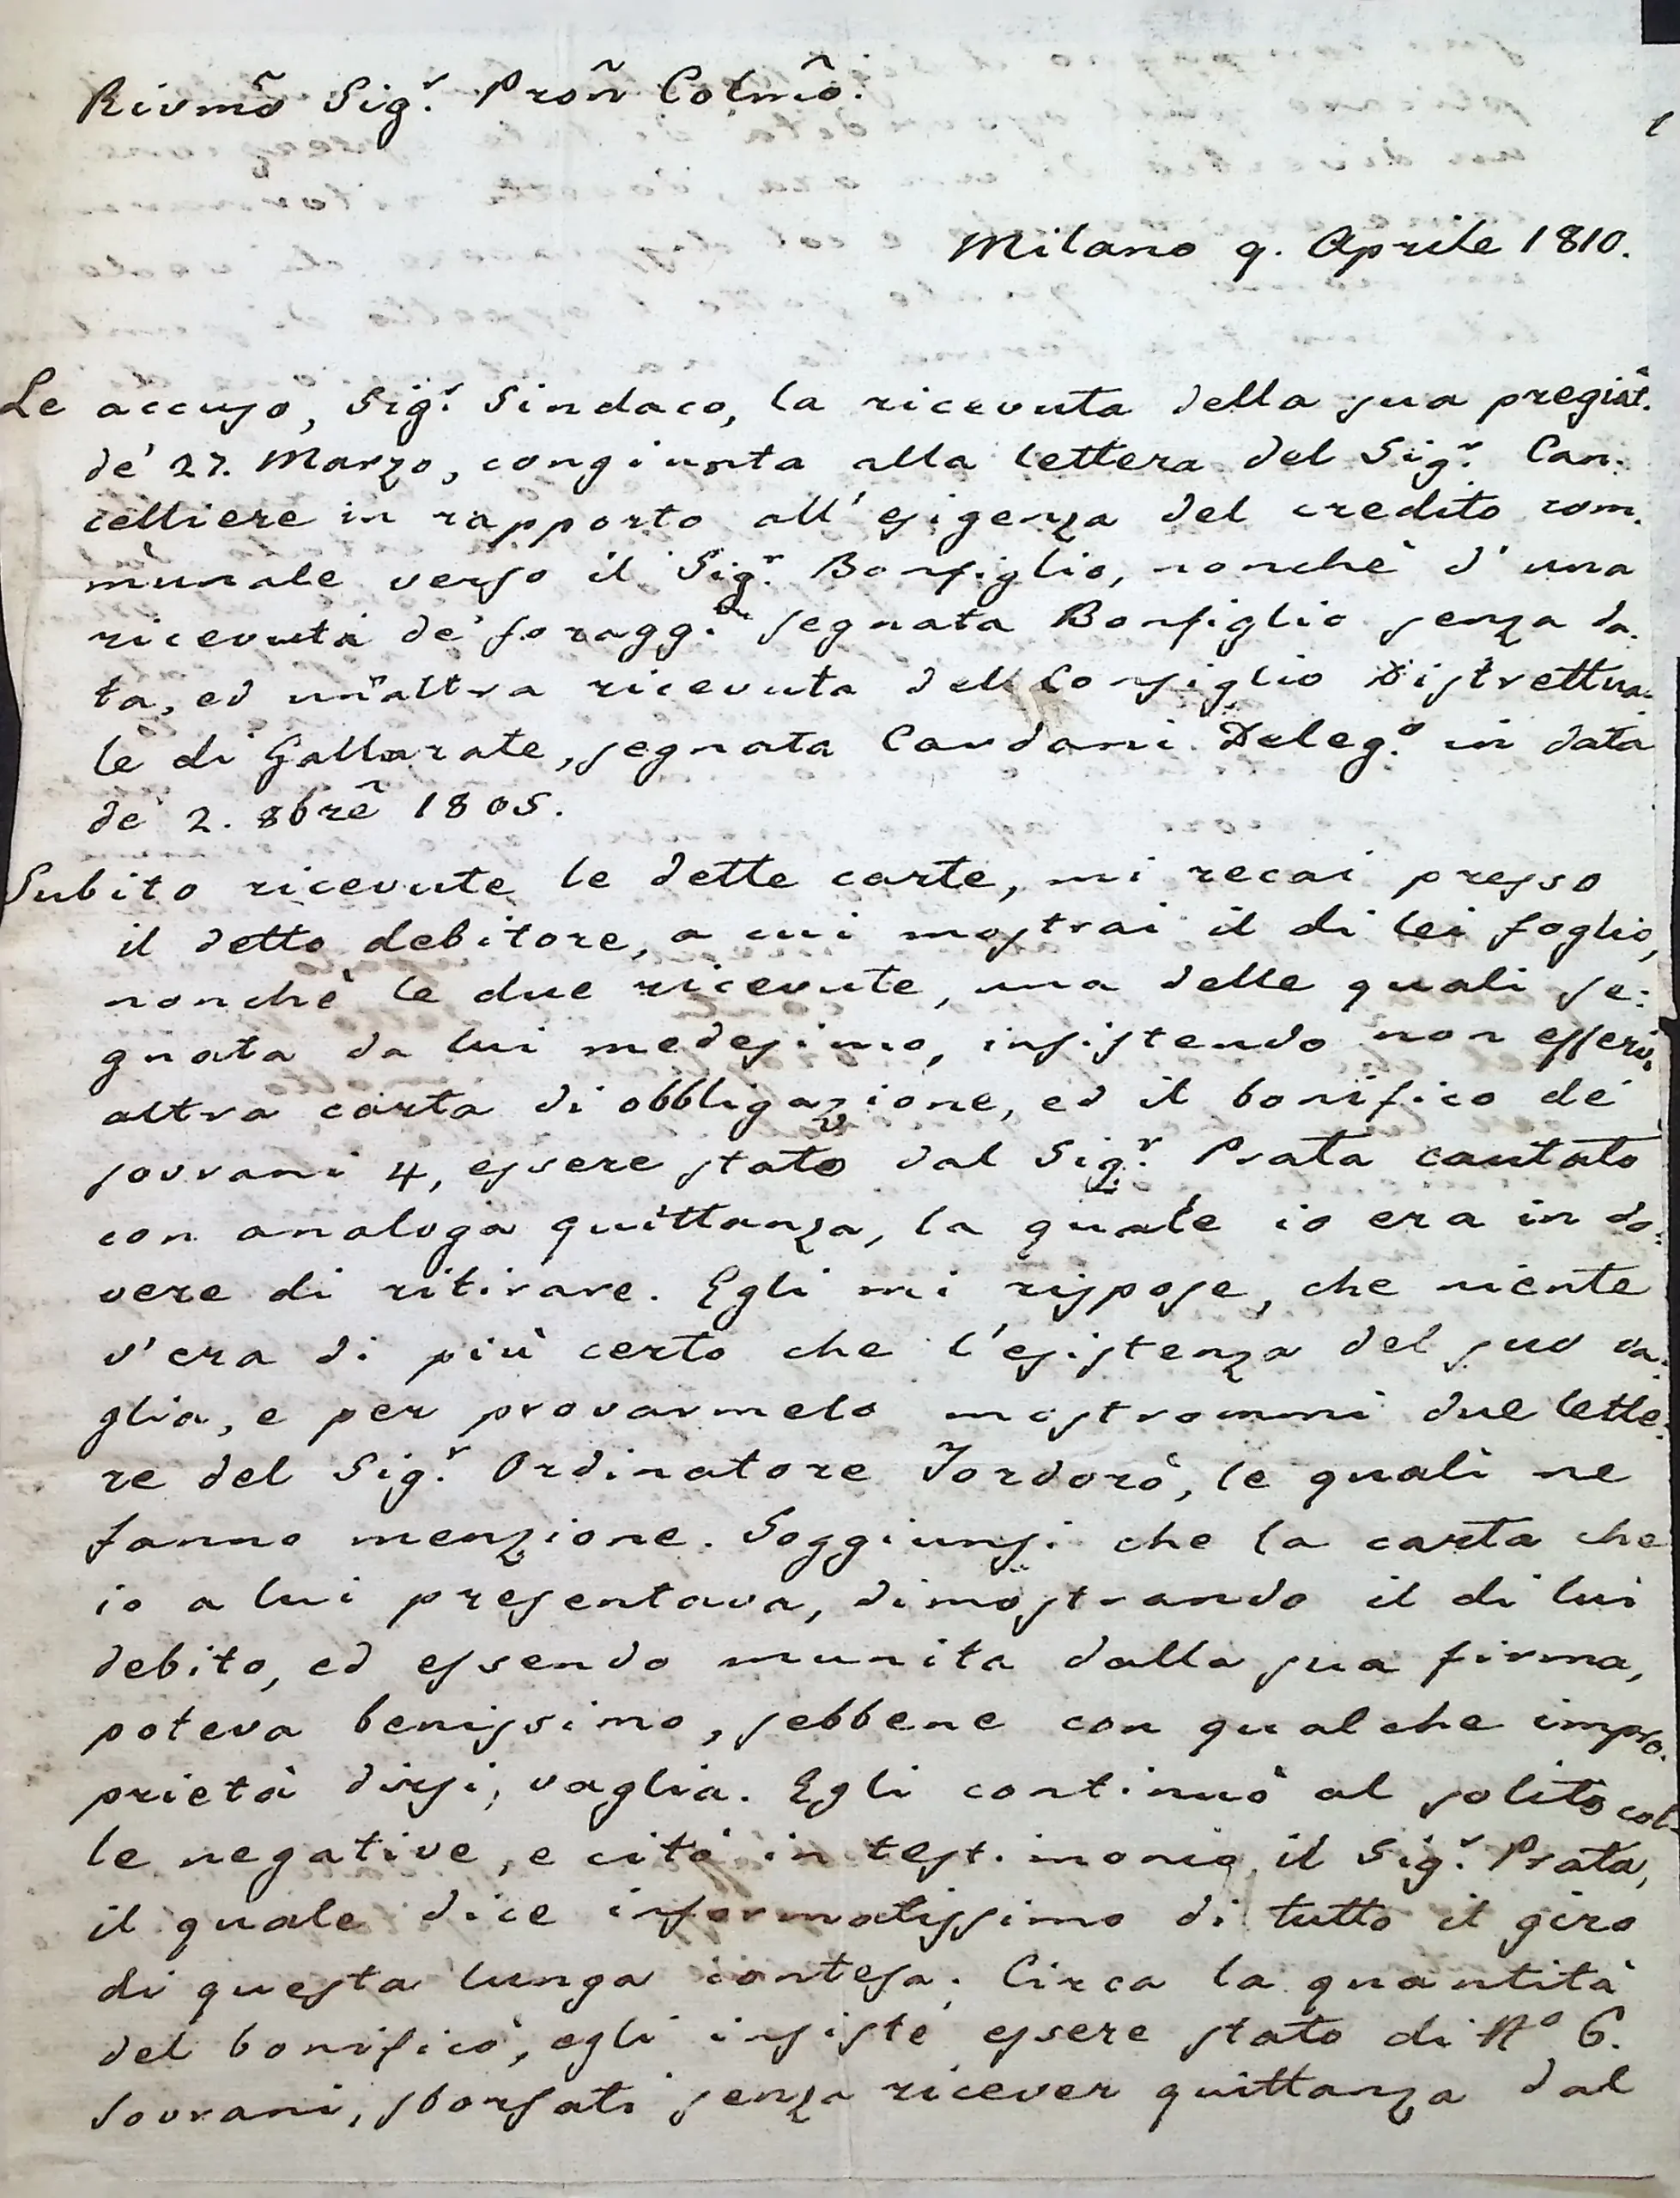 Rivmõ Sig.r Proñ Colmõ.
Milano 9. Aprile 1810.
Le accuso, Sig.r Sindaco, la ricevuta della sua pregiat.
de' 27. Marzo, congiunta alla lettera del Sig.r Can:
celliere in rapporto all'esigenza del credito com.
munale verso il Sig.r Bonfiglio, nonchè d'una
ricevuta de' foragg. segnata Bonfiglio senza da.
ta, ed un'altra ricevuta del Consiglio Distrettua.
le di Gallarate, segnata Candani Deleg.o in data
de' 2. 8brẽ 1805.
Subito ricevute le dette carte, mi recai presso
il detto debitore, a cui mostrai il di lei foglio,
nonchè le due ricevute, una delle quali se:
gnata da lui medesimo, insistendo non esservi
altra carta di obbligazione, ed il bonifico de'
sovrani 4, essere stato dal Sig.r Prata cautato
con analoga quittanza, la quale io era in do:
vere di ritirare. Egli mi rispose, che niente
v'era di più certo che l'esistenza del suo va:
glia, e per provarmelo mostrommi due lette:
re del Sig.r Ordinatore Tordorò, le quali ne
fanno menzione. Soggiunsi che la carta che
io a lui presentava, dimostrando il di lui
debito, ed essendo munita dalla sua firma,
poteva benissimo, sebbene con qualche impro.
prietà dirsi, vaglia. Egli continuò al solito col-
le negative, e citò in testimonio il Sig.r Prata,
il quale dice informatissimo di tutto il giro
di questa lunga contesa. Circa la quantità
del bonifico, egli insiste essere stato di No 6.
sovrani, sborsati senza ricever quittanza dal